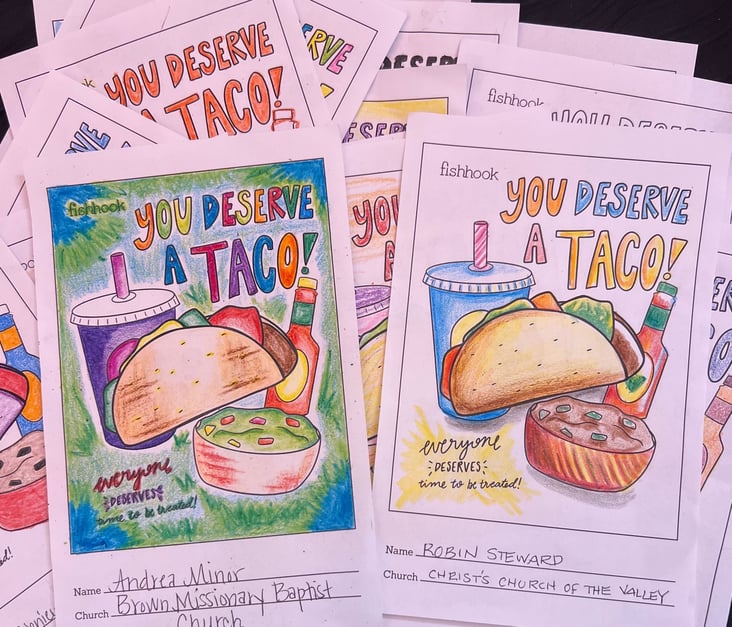 YOU DESERVE
A TACO!
fishhook
YOU
fishhook
YOU DESERVE
A TACO!
everyone
DESERVES
time to be treated!
Name Andrea Minor
Church Brown Missionary Baptist
Church
fishhook
YOU DESERVE
A TACO!
everyone
DESERVES
time to be treated!
Name ROBIN STEWARD
Church CHRIST'S CHURCH OF THE VALLEY